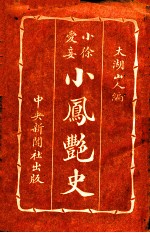 大湖山人編
小徐
愛妾
小鳳艷史
中央新聞社出版